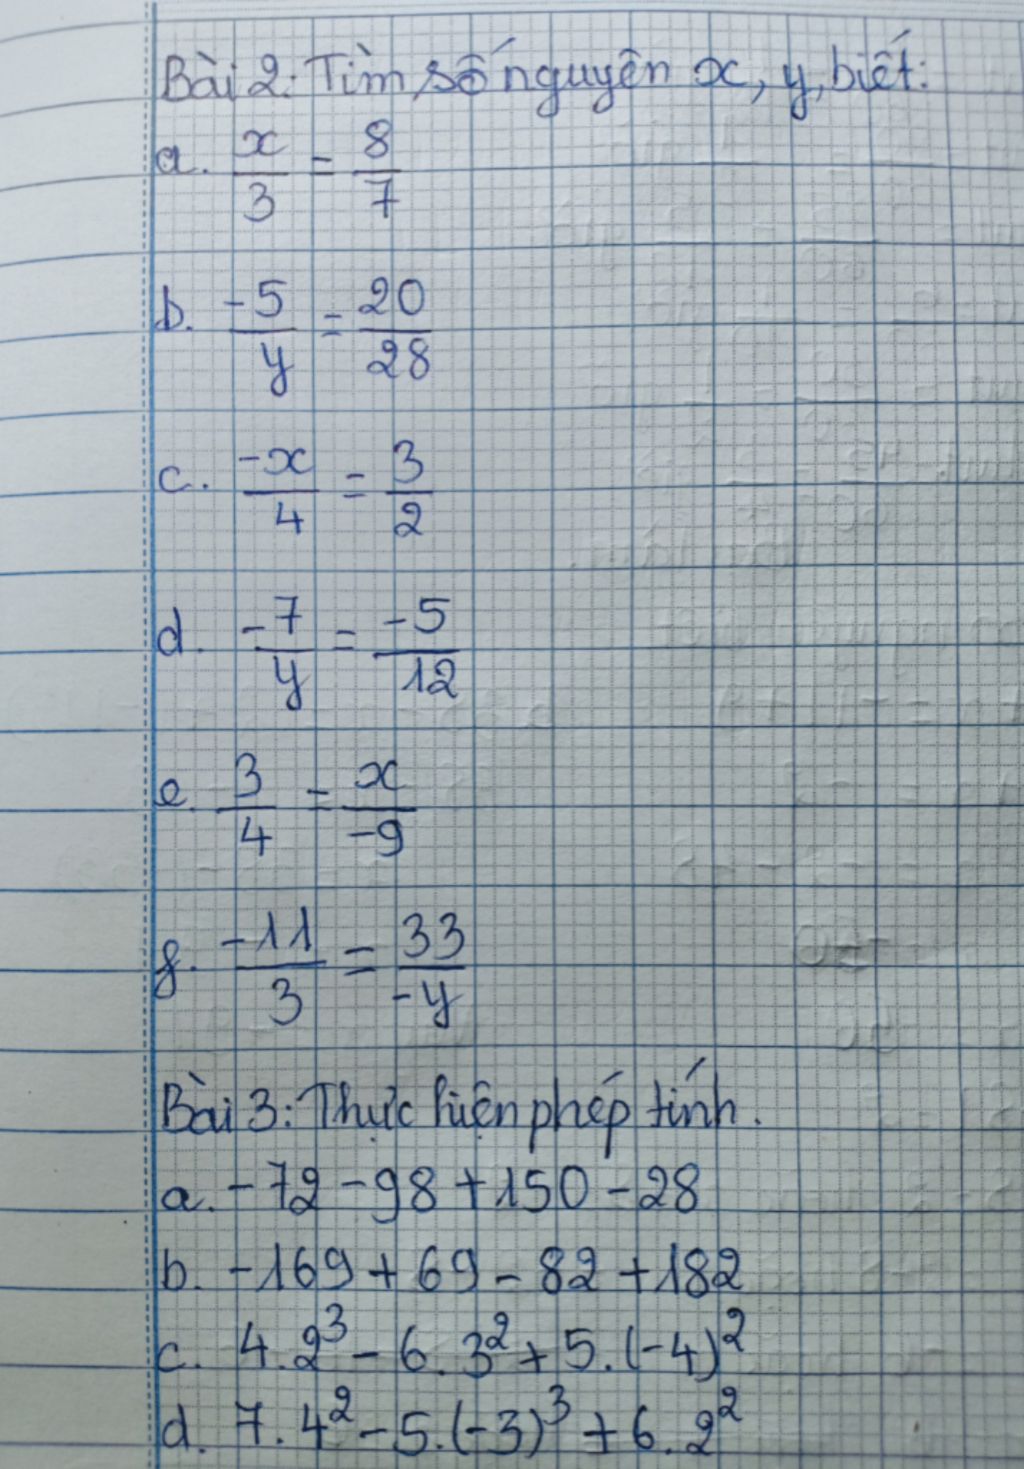 Bài 2: Tìm số nguyên x, y, biết:
a. x/3 = 8/7
b. -5/y = 20/28
c. -x/4 = 3/2
d. -7/y = -5/12
e. 3/4 = x/-9
f. -11/3 = 33/-y
Bài 3: Thực hiện phép tính.
a. -72 - 98 + 150 - 28
b. -169 + 69 - 82 + 182
c. 4.2³ - 6.3² + 5.(-4)²
d. 7.4² - 5.(-3)³ + 6.2²